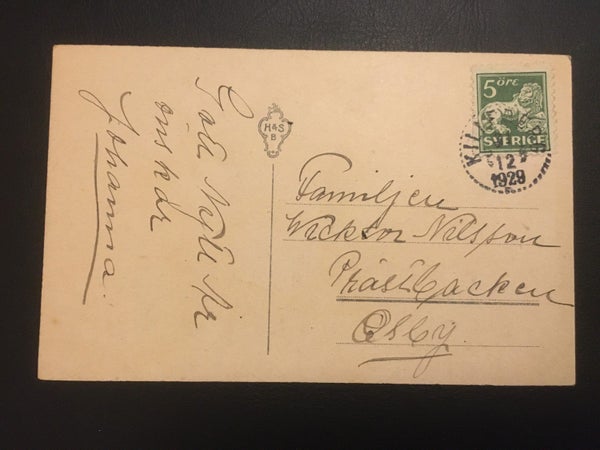 Gott Nytt År
önskar
Johanna.
H&S
B
5 ÖRE
SVERIGE
12
1929
Familjen
Wicktor Nilsson
Prästbacken
Osby.